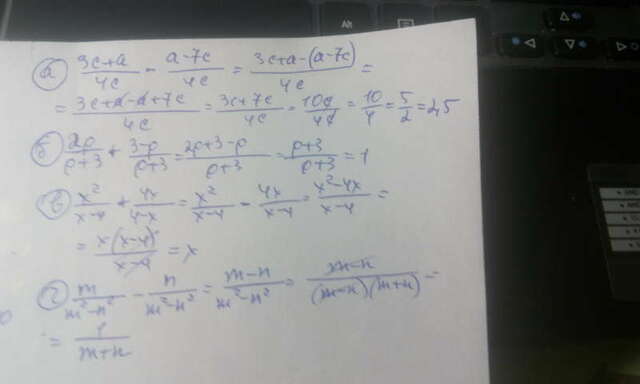 а) (3c+a)/4c - (a-7c)/4c = (3c+a-(a-7c))/4c =
= (3c+a-a+7c)/4c = (3c+7c)/4c = 10c/4c = 10/4 = 5/2 = 2,5
б) 2p/(p+3) + (3-p)/(p+3) = (2p+3-p)/(p+3) = (p+3)/(p+3) = 1
в) x²/(x-4) + 4x/(4-x) = x²/(x-4) - 4x/(x-4) = (x²-4x)/(x-4) =
= x(x-4)/(x-4) = x
г) m/(m²-n²) - n/(m²-n²) = (m-n)/(m²-n²) = (m-n)/((m-n)(m+n)) =
= 1/(m+n)
Alt